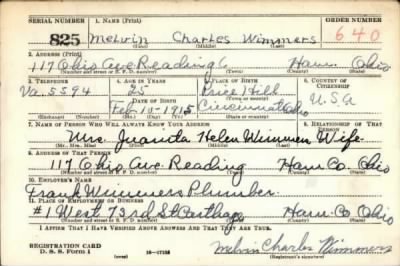 SERIAL NUMBER 1. NAME (Print) ORDER NUMBER
825 Melvin Charles Wimmers 640
(First) (Middle) (Last)
2. ADDRESS (Print)
117 Ohio Ave Reading Ham. Ohio
(Number and street or R. F. D. number) (Town) (County) (State)
3. TELEPHONE 4. AGE IN YEARS 5. PLACE OF BIRTH 6. COUNTRY OF CITIZENSHIP
Va. 5594 25 Price Hill
DATE OF BIRTH (Town or county)
Feb-10-1915 Cincinnati Ohio U.S.A
(Exchange) (Number) (Mo.) (Day) (Yr.) (State or country)
7. NAME OF PERSON WHO WILL ALWAYS KNOW YOUR ADDRESS 8. RELATIONSHIP OF THAT PERSON
Mrs. Juanita Helen Wimmers Wife
(Mr., Mrs., Miss) (First) (Middle) (Last)
9. ADDRESS OF THAT PERSON
117 Ohio Ave. Reading Ham Co. Ohio
(Number and street or R. F. D. number) (Town) (County) (State)
10. EMPLOYER'S NAME
Frank Wimmers Plumber
11. PLACE OF EMPLOYMENT OR BUSINESS
#1 West 73rd St Carthage Ham Co. Ohio
(Number and street or R. F. D. number) (Town) (County) (State)
I AFFIRM THAT I HAVE VERIFIED ABOVE ANSWERS AND THAT THEY ARE TRUE.
REGISTRATION CARD
D. S. S. Form 1 (over) Melvin Charles Wimmers
(Registrant's signature)